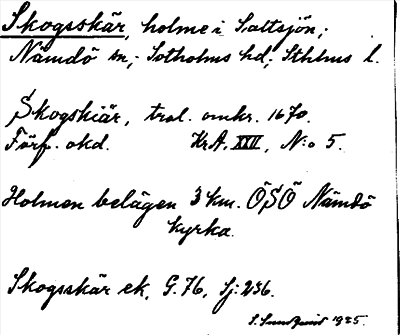 Skogsskär, holme i Saltsjön,;
Nämdö sn,; Sotholms hd,; Sthlms l.
Skogskiär, trol. omkr. 1670.
Förf. okd. KrA. XXII, N:o 5.
Holmen belägen 3 km. ÖSÖ Nämdö
kyrka.
Skogsskär ek, G. 76, Sj: 236.
1925.